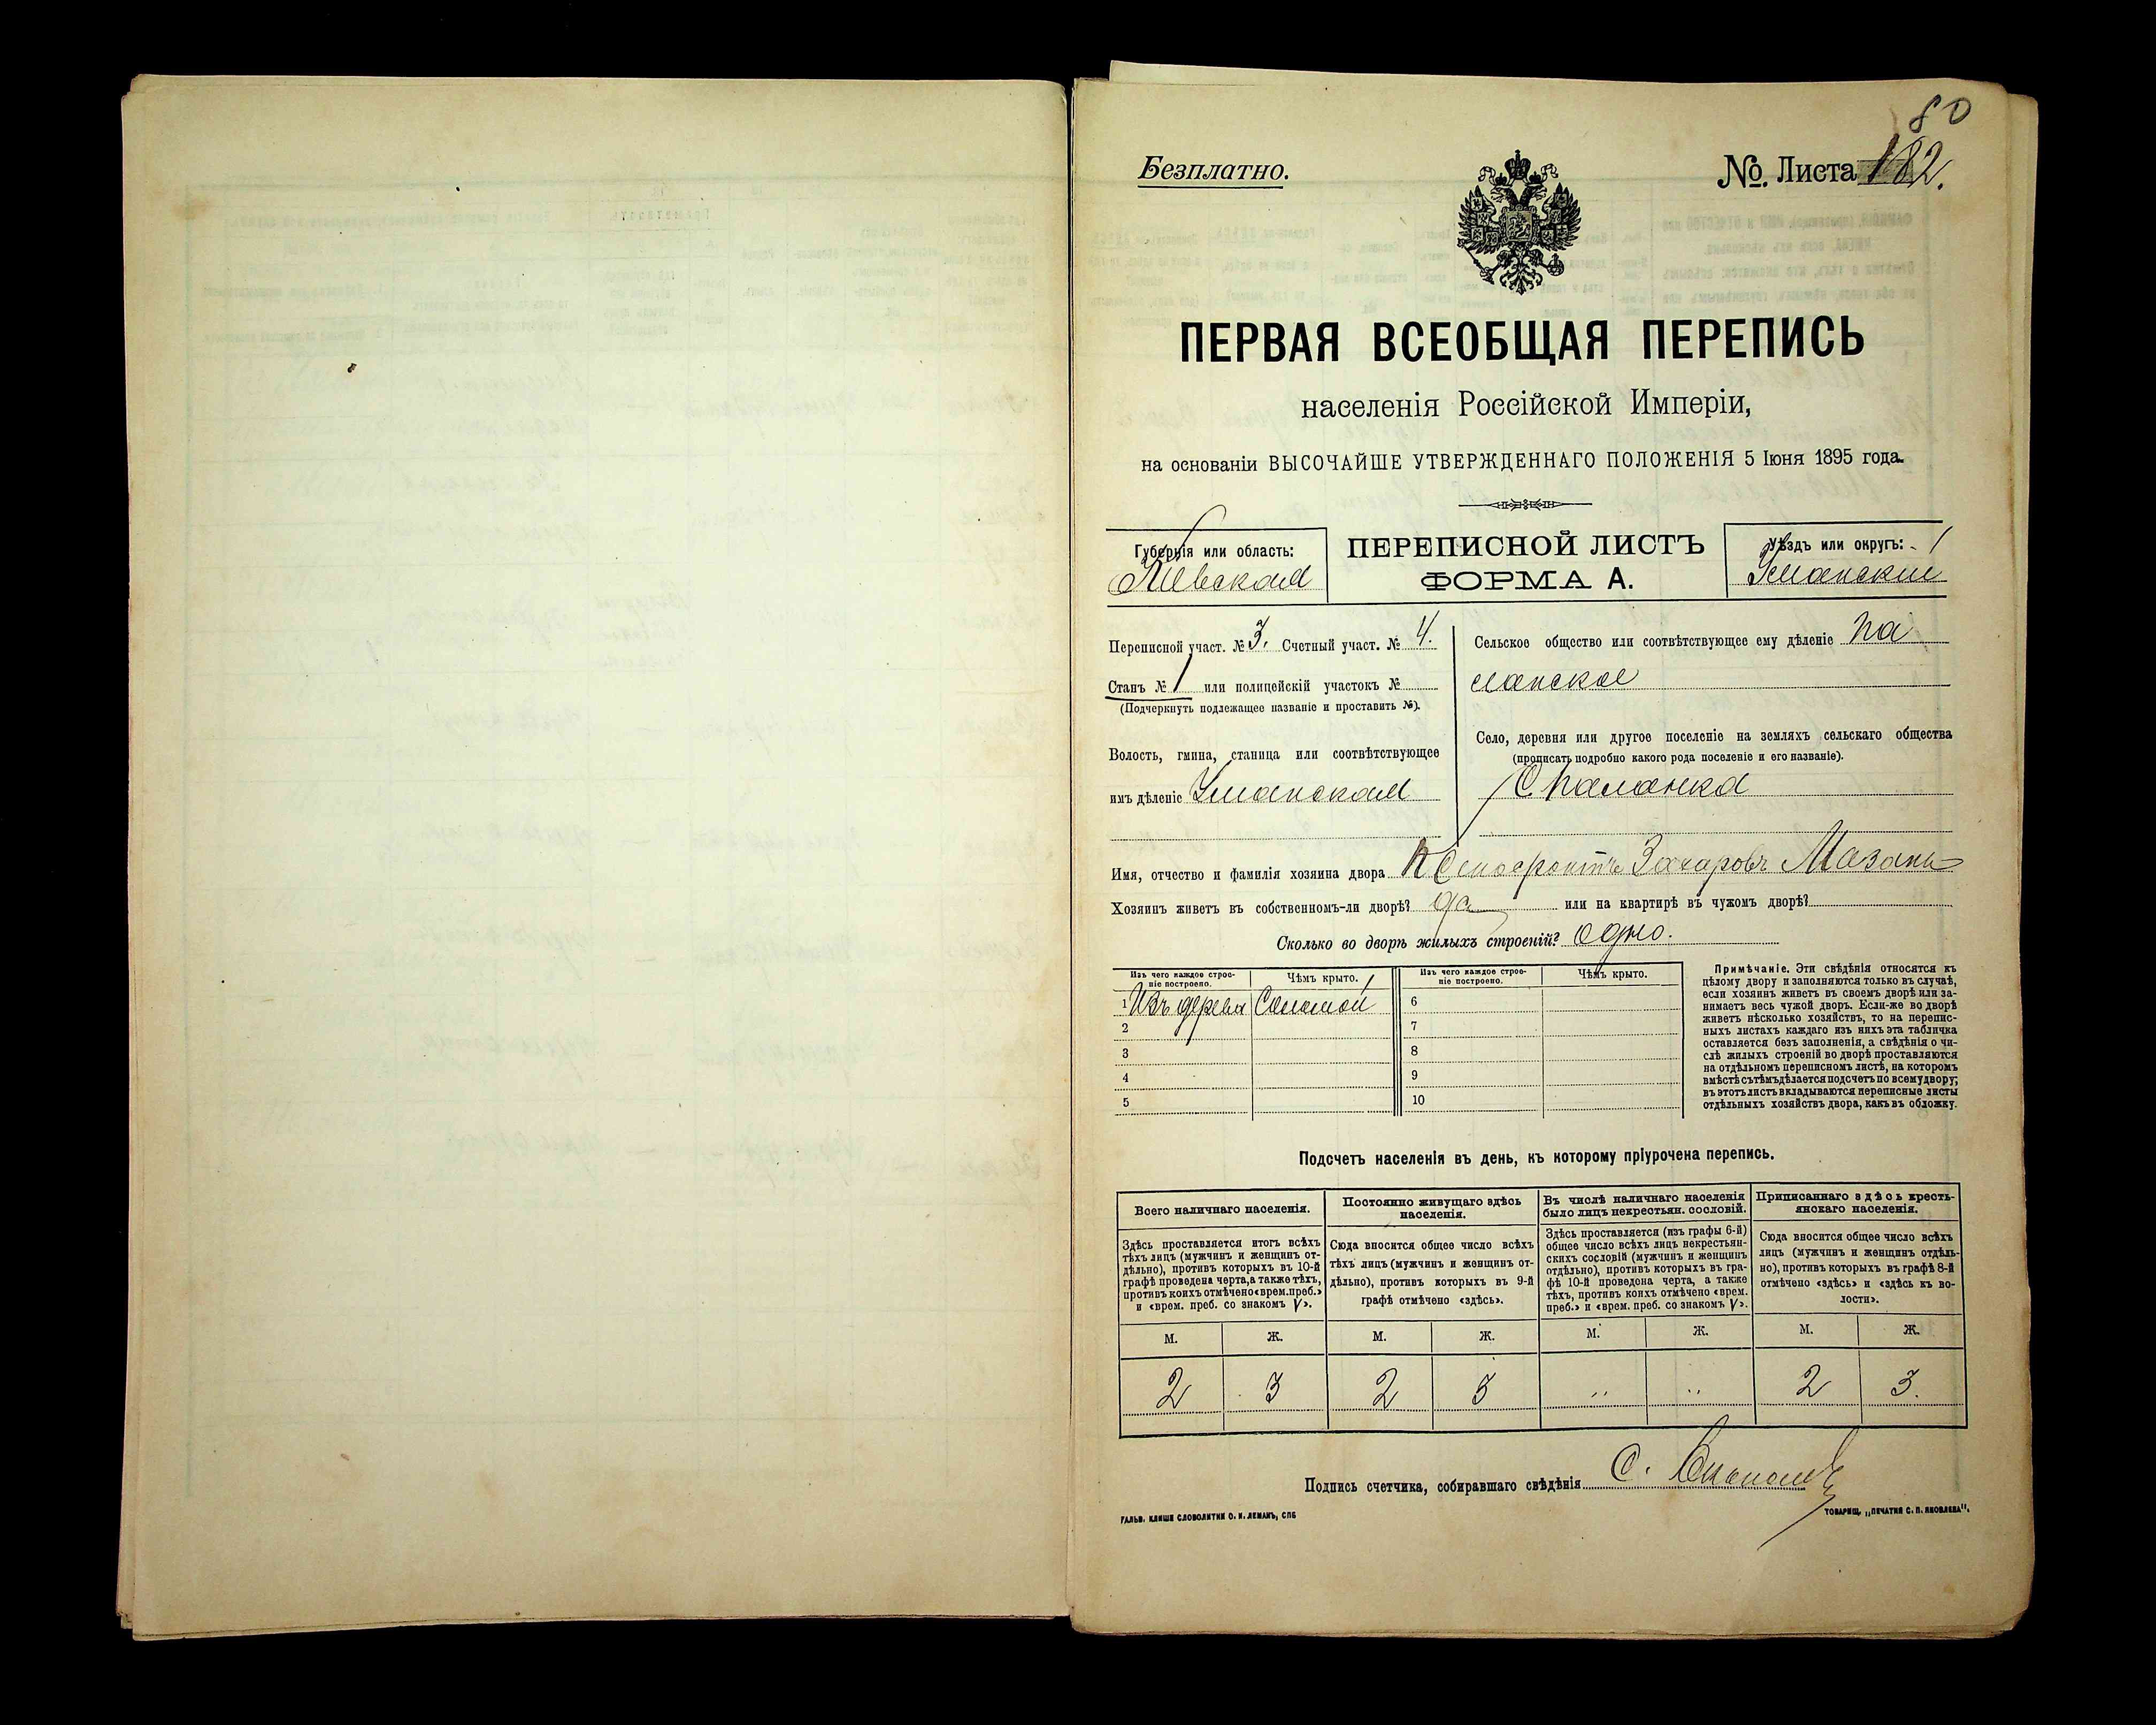 80
Безплатно.
№. Листа 182.
ПЕРВАЯ ВСЕОБЩАЯ ПЕРЕПИСЬ
населенія Россійской Имперіи,
на основаніи ВЫСОЧАЙШЕ УТВЕРЖДЕННАГО ПОЛОЖЕНІЯ 5 Іюня 1895 года.
Губернія или область:
Кіевская
ПЕРЕПИСНОЙ ЛИСТЪ
ФОРМА А.
Уѣздъ или округъ:
Уманскій
Переписной участ. № 3. Счетный участ. № 4.
Станъ № 1 или полицейскій участокъ №
(Подчеркнуть подлежащее названіе и проставить №).
Волость, гмина, станица или соотвѣтствующее
имъ дѣленіе Уманская
Сельское общество или соотвѣтствующее ему дѣленіе Па
ланское
Село, деревня или другое поселеніе на земляхъ сельскаго общества
(прописать подробно какого рода поселеніе и его названіе).
С Паланка
Имя, отчество и фамилія хозяина двора Ксенофонтъ Захаровъ
Хозяинъ живетъ въ собственномъ-ли дворѣ? да или на квартирѣ въ чужомъ дворѣ?
Сколько во дворѣ жилыхъ строеній? Одно.
Изъ чего каждое строе-
ніе построено.
Чѣмъ крыто.
Изъ чего каждое строе-
ніе построено.
Чѣмъ крыто.
1 Изъ дерева Соломой
2
3
4
5
6
7
8
9
10
Примѣчаніе. Эти свѣдѣнія относятся къ
цѣлому двору и заполняются только въ случаѣ,
если хозяинъ живетъ въ своемъ дворѣ или за-
нимаетъ весь чужой дворъ. Если-же во дворѣ
живетъ нѣсколько хозяйствъ, то на перепис-
ныхъ листахъ каждаго изъ нихъ эта табличка
оставляется безъ заполненія, а свѣдѣнія о чи-
слѣ жилыхъ строеній во дворѣ проставляются
на отдѣльномъ переписномъ листѣ, на которомъ
вмѣстѣ съ тѣмъ дѣлается подсчетъ по всему двору;
въ этотъ листъ вкладываются переписные листы
отдѣльныхъ хозяйствъ двора, какъ въ обложку.
Подсчетъ населенія въ день, къ которому пріурочена перепись.
Всего наличнаго населенія.
Здѣсь проставляется итогъ всѣхъ
тѣхъ лицъ (мужчинъ и женщинъ от-
дѣльно), противъ которыхъ въ 10-й
графѣ проведена черта, а также тѣхъ,
противъ коихъ отмѣчено «врем. преб.»
и «врем. преб. со знакомъ V».
Постоянно живущаго здѣсь
населенія.
Сюда вносится общее число всѣхъ
тѣхъ лицъ (мужчинъ и женщинъ от-
дѣльно), противъ которыхъ въ 9-й
графѣ отмѣчено «здѣсь».
Въ числѣ наличнаго населенія
было лицъ некрестьян. сословій.
Здѣсь проставляется (изъ графы 6-й)
общее число всѣхъ лицъ некрестьян-
скихъ сословій (мужчинъ и женщинъ
отдѣльно), противъ которыхъ въ гра-
фѣ 10-й проведена черта, а также
тѣхъ, противъ коихъ отмѣчено «врем.
преб.» и «врем. преб. со знакомъ V».
Приписаннаго здѣсь кресть-
янскаго населенія.
Сюда вносится общее число всѣхъ
лицъ (мужчинъ и женщинъ отдѣль-
но), противъ которыхъ въ графѣ 8-й
отмѣчено «здѣсь» и «здѣсь къ во-
лости».
М. Ж. М. Ж. М. Ж. М. Ж.
2 3 2 3 " " 2 3.
Подпись счетчика, собиравшаго свѣдѣнія С.
ГАЛЬВ. КЛИШЕ СЛОВОЛИТНИ О. И. ЛЕМАНЪ, СПБ
ТОВАРИЩ. „ПЕЧАТНЯ С. П. ЯКОВЛЕВА".